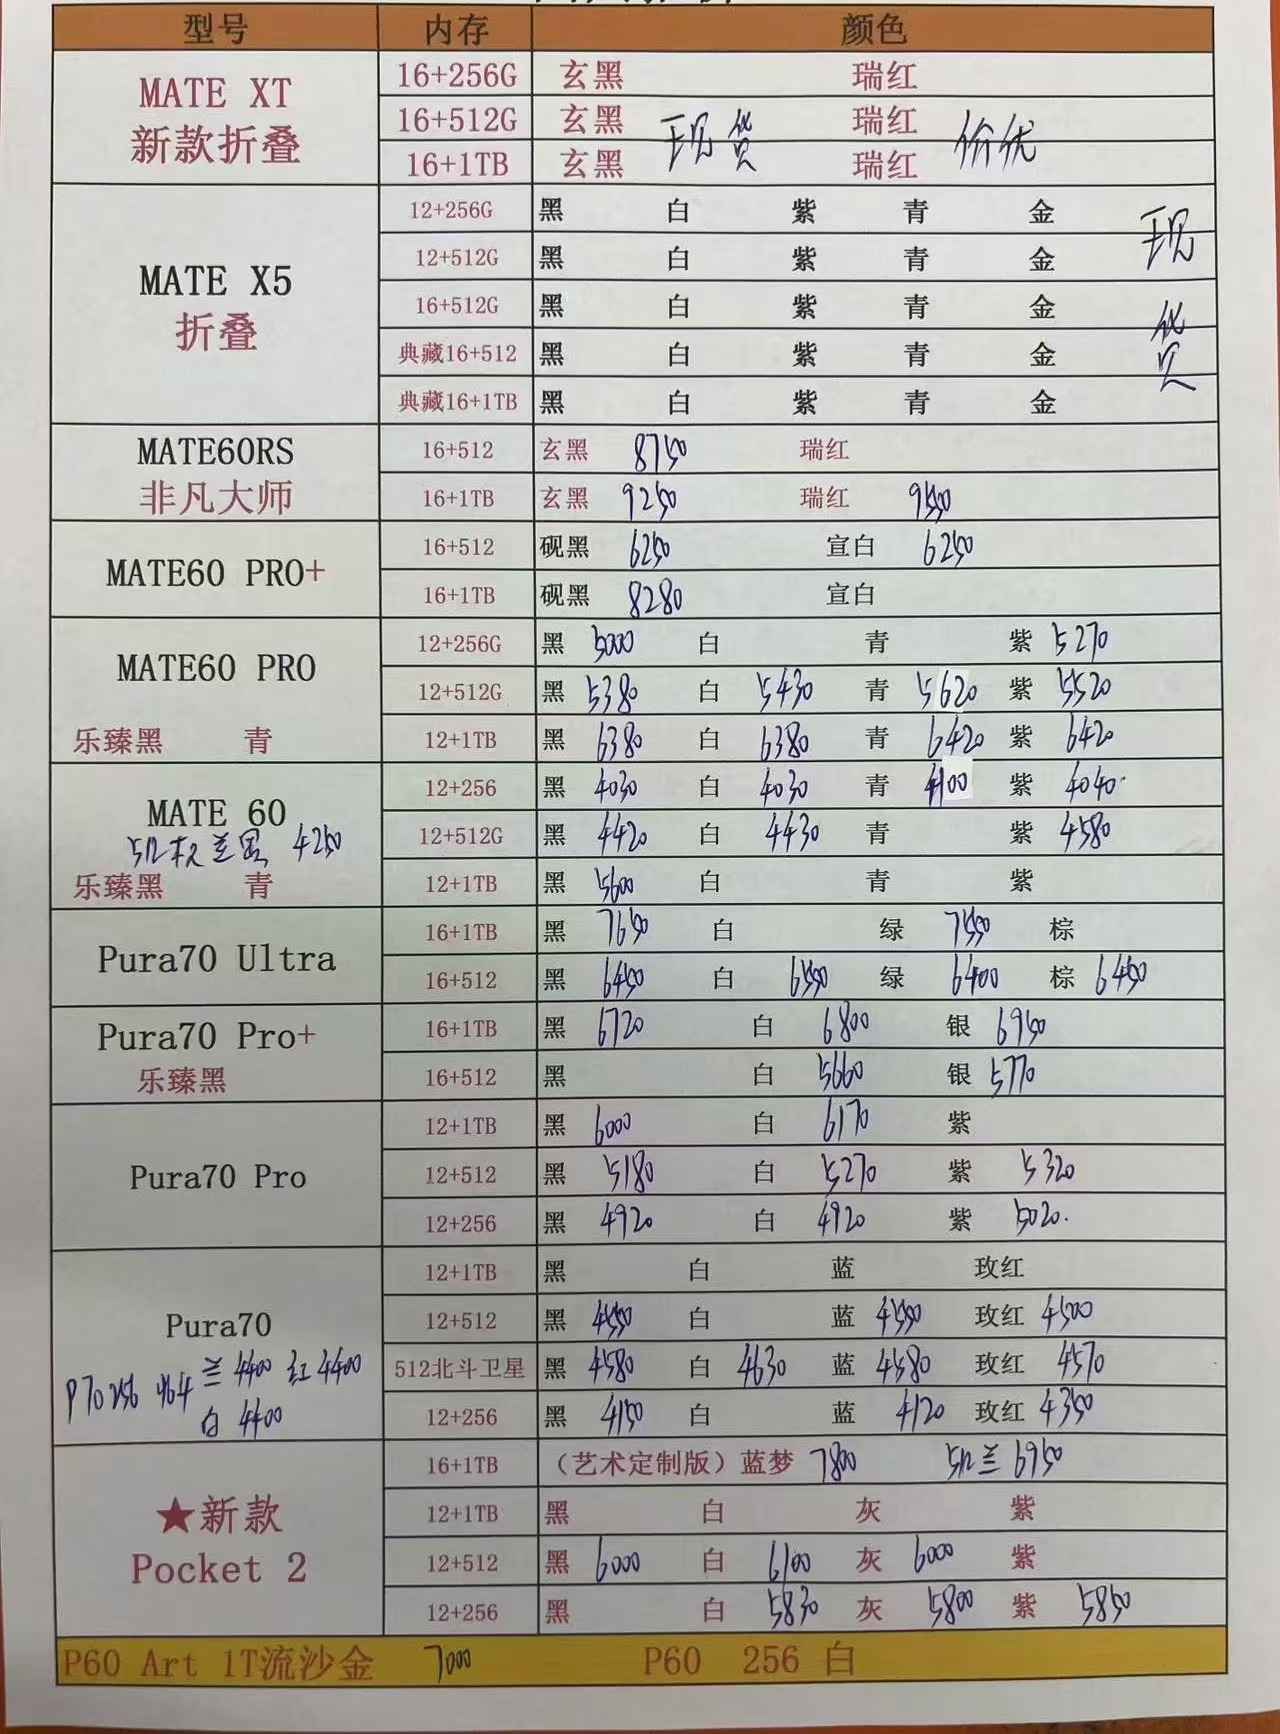 型号 内存 颜色
MATE XT 新款折叠
16+256G 玄黑 瑞红
16+512G 玄黑 现货 瑞红 价优
16+1TB 玄黑 瑞红
MATE X5 折叠
12+256G 黑 白 紫 青 金 现货
12+512G 黑 白 紫 青 金
16+512G 黑 白 紫 青 金
典藏16+512 黑 白 紫 青 金
典藏16+1TB 黑 白 紫 青 金
MATE60RS 非凡大师
16+512 玄黑 8750 瑞红
16+1TB 玄黑 9250 瑞红 9550
MATE60 PRO+
16+512 砚黑 6250 宣白 6250
16+1TB 砚黑 8280 宣白
MATE60 PRO
乐臻黑 青
12+256G 黑 5000 白 青 紫 5270
12+512G 黑 5380 白 5430 青 5620 紫 5520
12+1TB 黑 6380 白 6380 青 6420 紫 6420
MATE 60
512 兰黑 4250
乐臻黑 青
12+256 黑 4030 白 4030 青 4100 紫 4040
12+512G 黑 4420 白 4430 青 紫 4580
12+1TB 黑 5600 白 青 紫
Pura70 Ultra
16+1TB 黑 7650 白 绿 7550 棕
16+512 黑 6450 白 6550 绿 6400 棕 6450
Pura70 Pro+
乐臻黑
16+1TB 黑 6720 白 6800 银 6950
16+512 黑 白 5660 银 5770
Pura70 Pro
12+1TB 黑 6000 白 6170 紫
12+512 黑 5180 白 5270 紫 5320
12+256 黑 4920 白 4920 紫 5020.
Pura70
P70 256 兰 4400 红 4400
白 4400
12+1TB 黑 白 蓝 玫红
12+512 黑 4550 白 蓝 4550 玫红 4500
512北斗卫星 黑 4580 白 4630 蓝 4580 玫红 4570
12+256 黑 4150 白 蓝 4120 玫红 4350
★新款
Pocket 2
16+1TB （艺术定制版）蓝梦 7800 512兰 6950
12+1TB 黑 白 灰 紫
12+512 黑 6000 白 6100 灰 6000 紫
12+256 黑 白 5830 灰 5800 紫 5850
P60 Art 1T流沙金 7000 P60 256 白